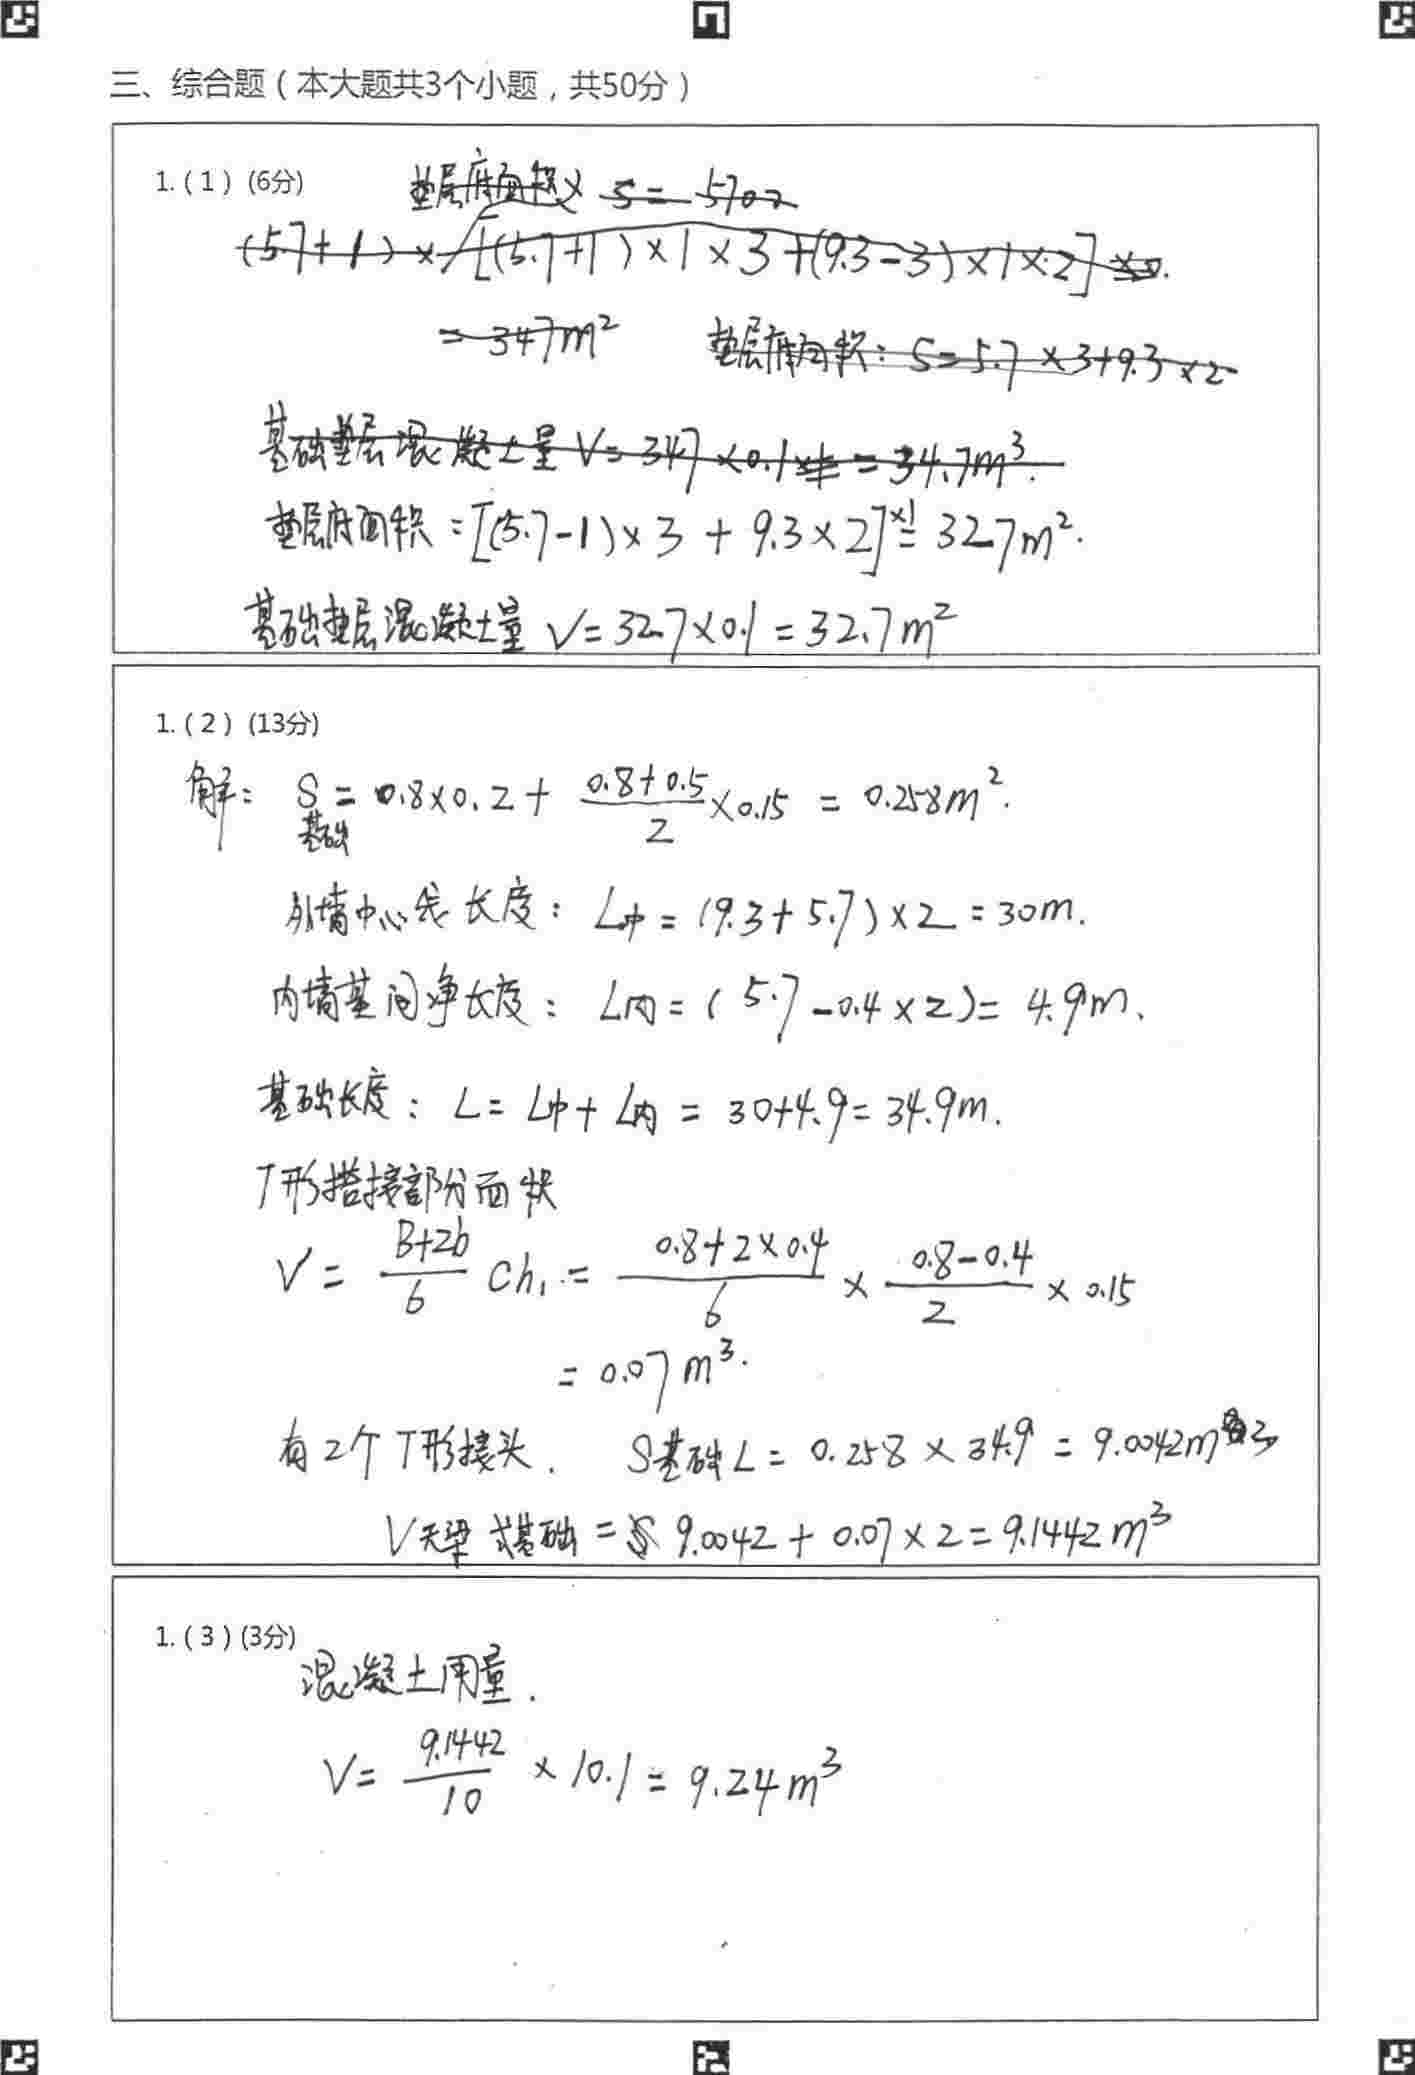 三、综合题（本大题共3个小题，共50分）
1.（1）(6分)
垫层底面积 S = 5702
(5.7+1)× [(5.7+1)×1×3+(9.3-3)×1×2]×0.
= 347m²
垫层底面积：S=5.7×3+9.3×2
基础垫层混凝土量 V=347×0.1 = 34.7m³.
垫层底面积 = [(5.7-1)×3 + 9.3×2]×1 = 327m².
基础垫层混凝土量 V=327×0.1=32.7m²
1.（2）(13分)
解： S基础 = 0.8×0.2+ (0.8+0.5)/2 ×0.15 = 0.258m².
外墙中心线长度：L中=(9.3+5.7)×2=30m.
内墙基间净长度：L内=(5.7-0.4×2)=4.9m.
基础长度：L=L中+L内=30+4.9=34.9m.
T形搭接部分面积
V= (B+2b)/6 Ch₁ = (0.8+2×0.4)/6 × (0.8-0.4)/2 ×0.15
= 0.07m³.
有2个T形接头. S基础L=0.258×34.9=9.0042m³
V无梁式基础=9.0042+0.07×2=9.1442m³
1.（3）(3分)
混凝土用量.
V= 9.1442/10 ×10.1=9.24m³